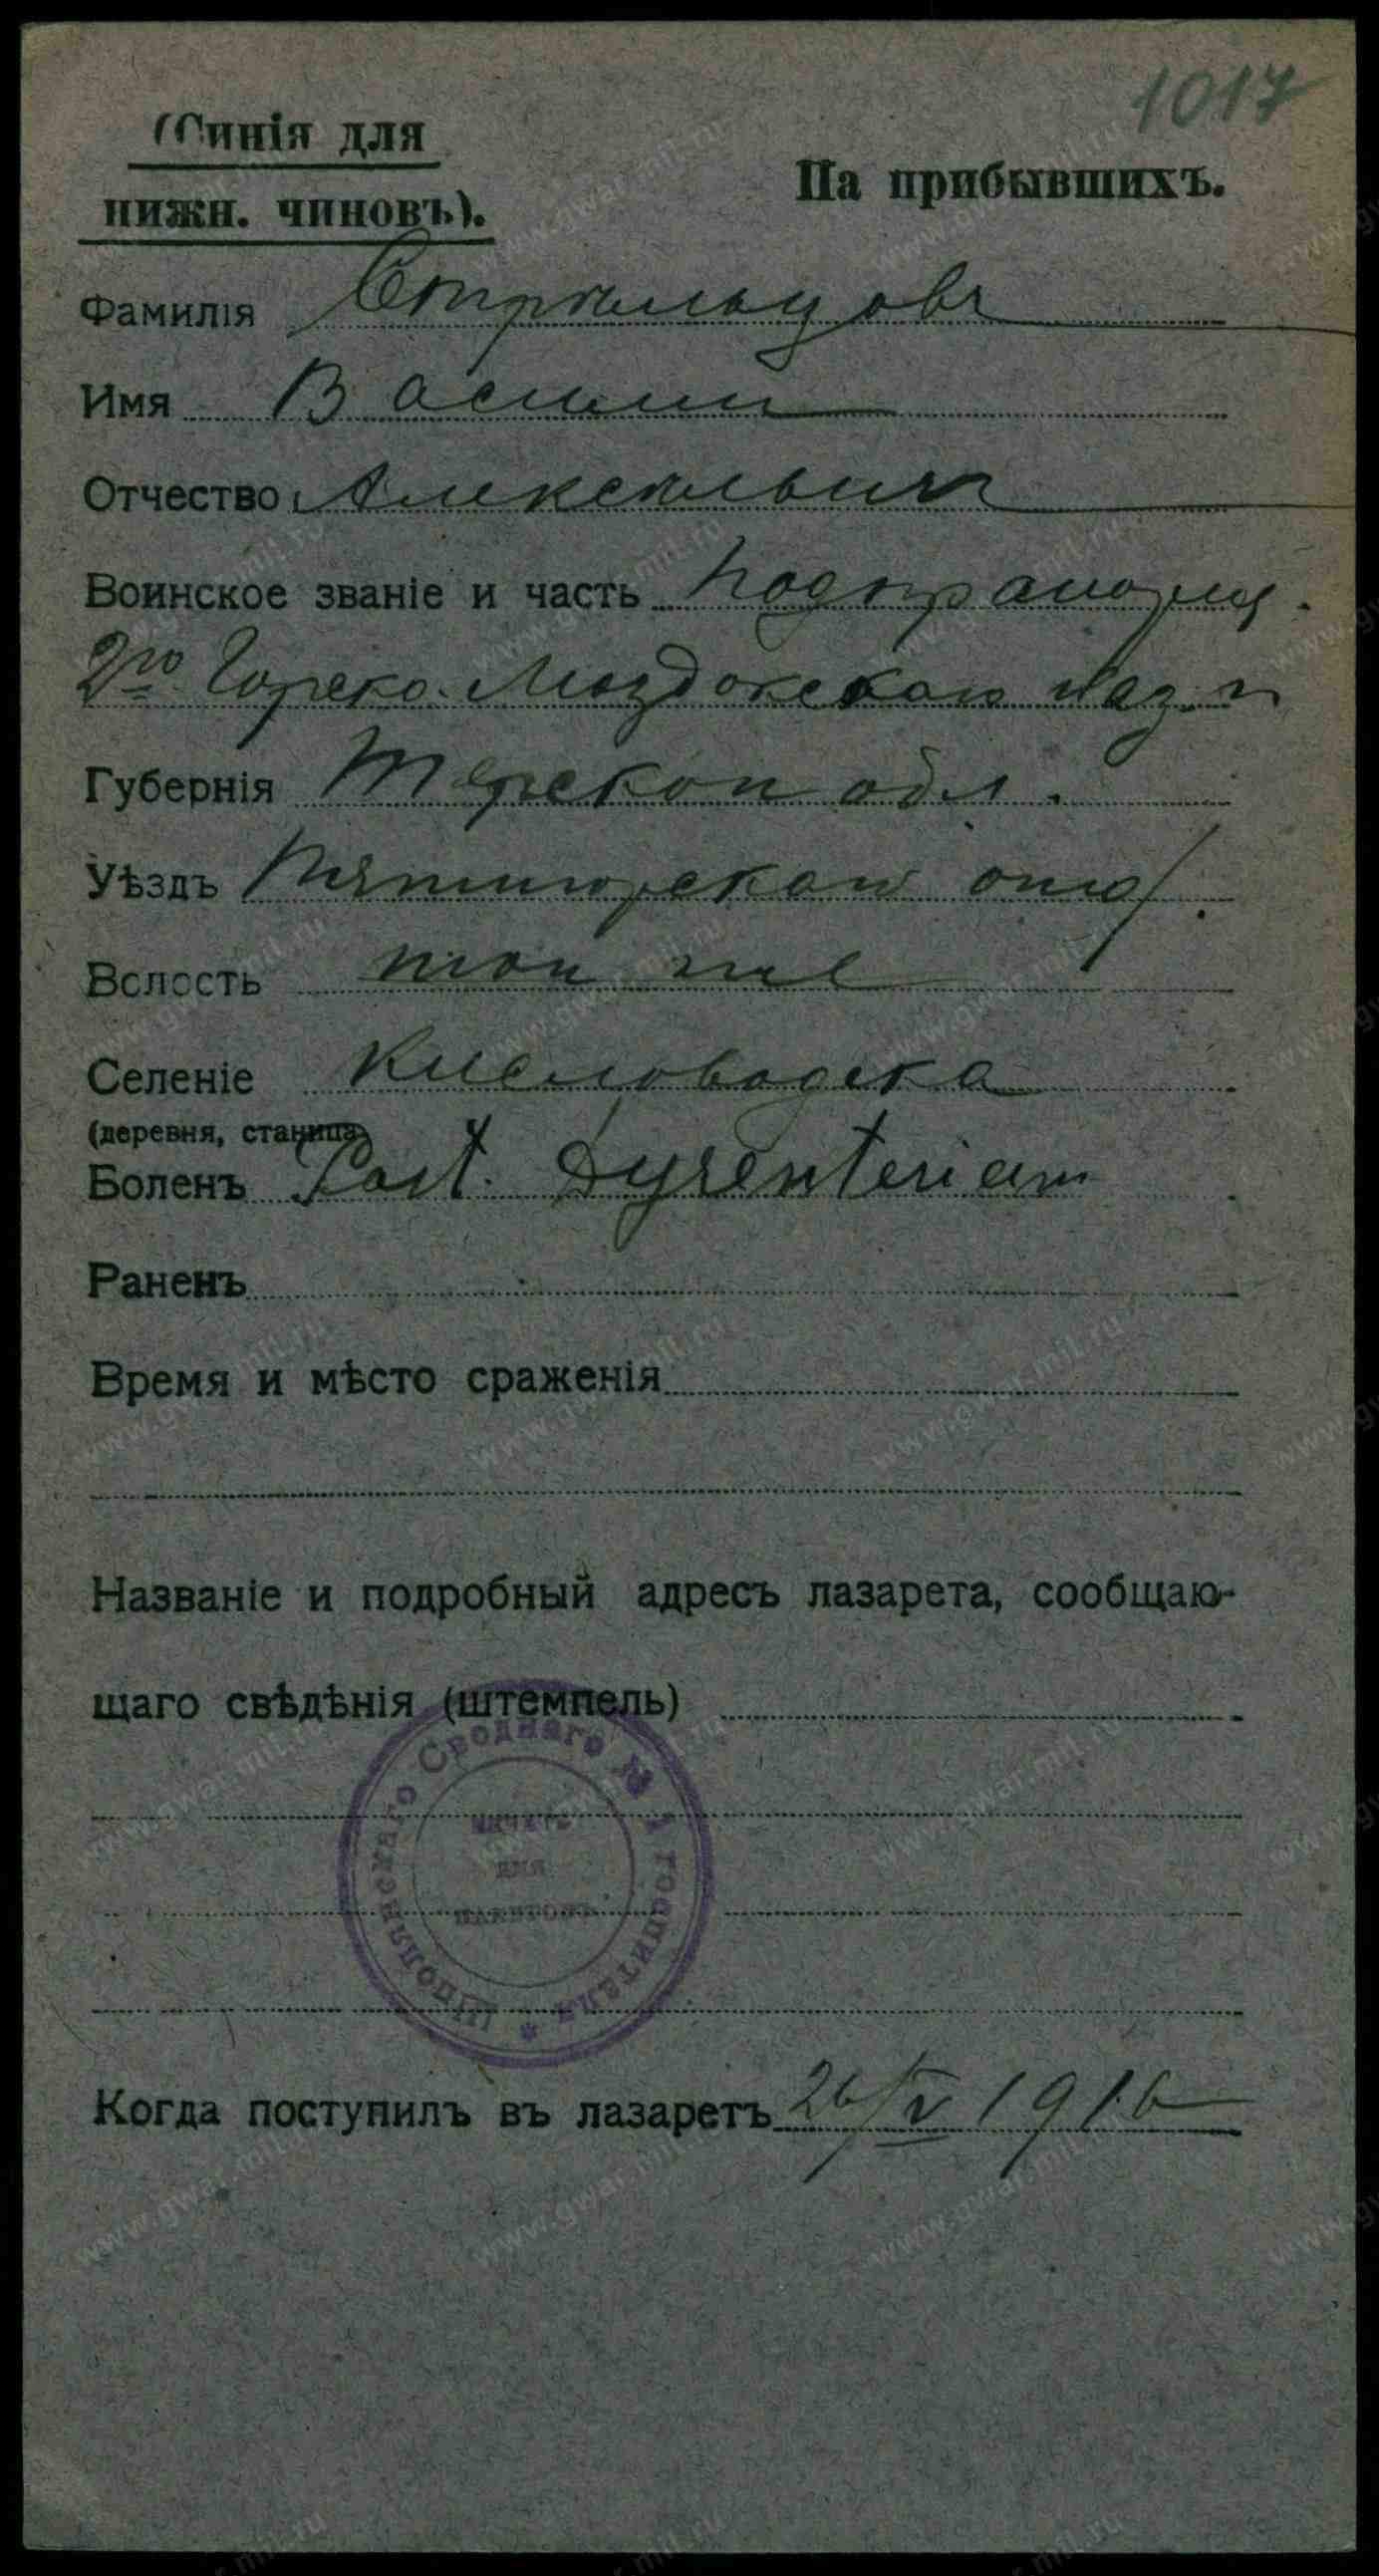 1017
(Синія для
нижн. чиновъ).
На прибывшихъ.
Фамилія Стрѣльцовъ
Имя Василий
Отчество Алексѣевичъ
Воинское званіе и часть подпрапорщ.
2го Горско-Моздокскаго каз. п
Губернія Терской обл.
Уѣздъ Пятигорскаго отд.
Волость той же
Селеніе Кисловодска
(деревня, станица)
Боленъ Post. Dysenteriam
Раненъ
Время и мѣсто сраженія
Названіе и подробный адресъ лазарета, сообщаю-
щаго свѣдѣнія (штемпель)
Своднаго № 1 госпиталя *
ПЕЧАТЬ
ДЛЯ
ПАКЕТОВЪ
Когда поступилъ въ лазаретъ 26/V 1916
www.gwar.mil.ru